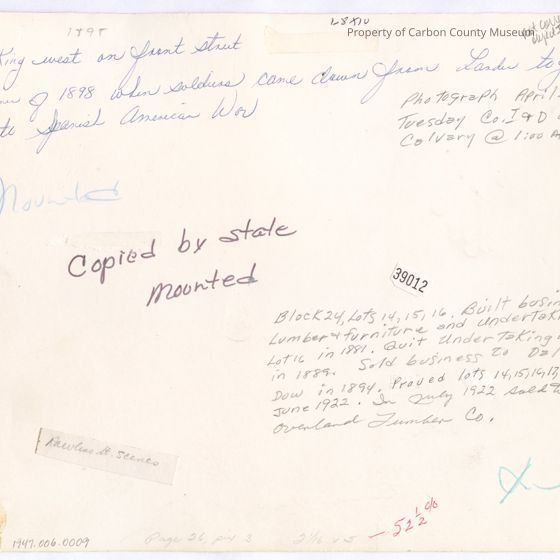 1898
L8X10
Property of Carbon County Museum
King west on front street
of 1898 when soldiers came down from Lander to
to Spanish American War
Photograph April
Tuesday Co. I & D
Calvary @ 1:00
Mounted
Copied by state
Mounted
39012
Block 24, Lots 14, 15, 16. Built busin
Lumber & furniture and undertak
Lot 16 in 1881. Quit Undertaking
in 1889. Sold business to
Dow in 1894. Proved lots 14, 15, 16,
June 1922. In July 1922 sold t
Overland Lumber Co.
Rawlins St. Scenes
1947.006.0009
Page 26, pix 3
- 52 1/2 %